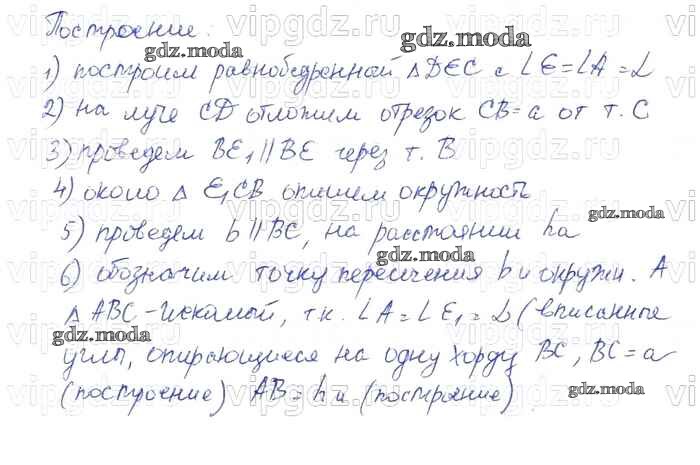 Построение:
1) построим равнобедренной △DEC с ∠E=∠A=α
2) на луче CD отложим отрезок CB=a от т. C
3) проведем BE₁∥BE через т. B
4) около △ E₁CB опишем окружность
5) проведем b∥BC, на расстоянии ha
6) обозначим точку пересечения b и окружн. A
△ ABC-искомой, т.к. ∠A=∠E₁=α (вписанные
углы, опирающиеся на одну хорду BC, BC=a
(построение) AB=hн (построение)
gdz.moda
vipgdz.ru